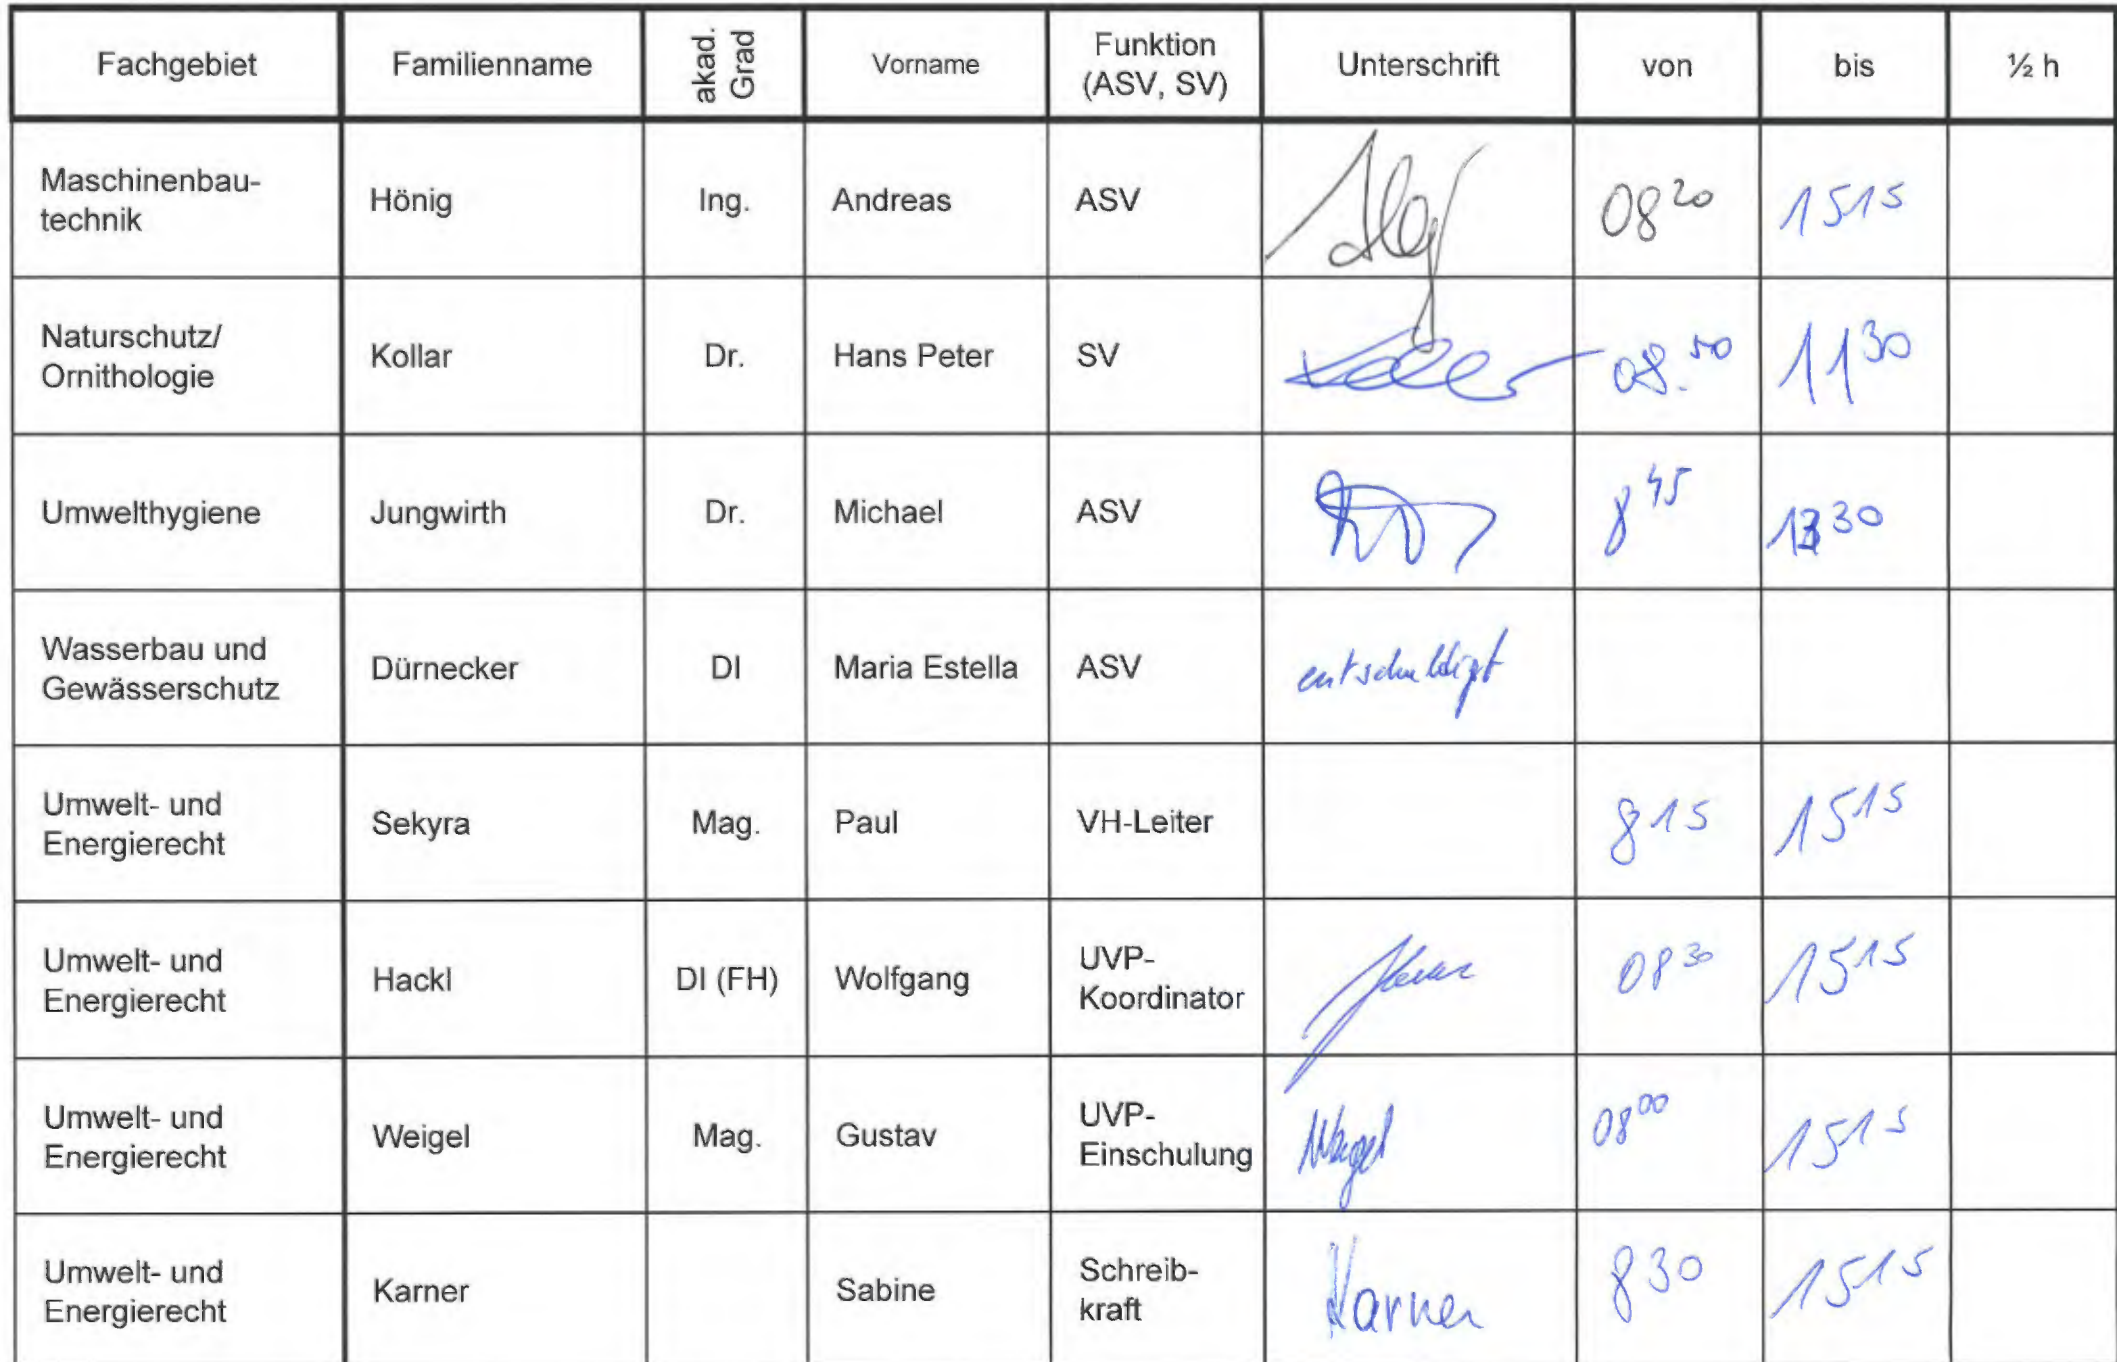 Fachgebiet Familienname akad. Grad Vorname Funktion (ASV, SV) Unterschrift von bis ½ h
Maschinenbau-
technik Hönig Ing. Andreas ASV 08 20 15 15
Naturschutz/
Ornithologie Kollar Dr. Hans Peter SV 08. 50 11 30
Umwelthygiene Jungwirth Dr. Michael ASV 8 45 13 30
Wasserbau und
Gewässerschutz Dürnecker DI Maria Estella ASV entschuldigt
Umwelt- und
Energierecht Sekyra Mag. Paul VH-Leiter 8 15 15 15
Umwelt- und
Energierecht Hackl DI (FH) Wolfgang UVP-
Koordinator 08 30 15 15
Umwelt- und
Energierecht Weigel Mag. Gustav UVP-
Einschulung Weigel 08 00 15 15
Umwelt- und
Energierecht Karner Sabine Schreib-
kraft Karner 8 30 15 15